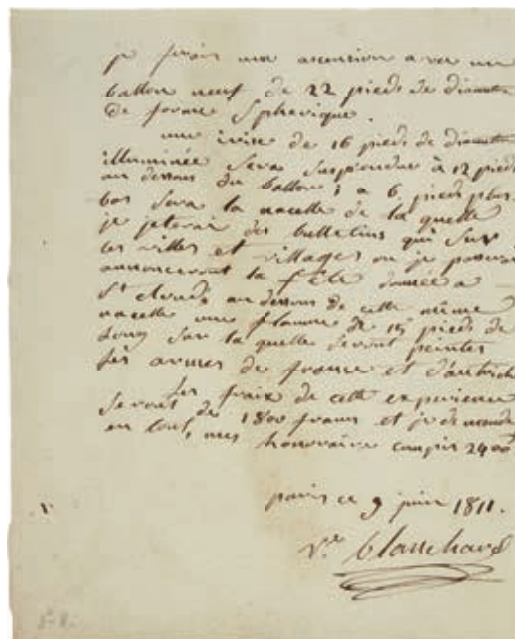 je ferais mon ascension avec un
ballon neuf de 22 pieds de diametre
de forme Spherique.
une irise de 16 pieds de diametre
illuminée Sera Suspendue à 12 pieds
au dessous du ballon; a 6 pieds plus
bas Sera la nacelle de la quelle
je jeterai des bulletins qui Sur
les villes et villages ou je passerai
annonceront la fête donnée a
St Cloud, au dessous de cette même
nacelle une flamme de 15 pieds de
long Sur la quelle Seront peintes
les armes de france et d'autriche
les fraix de cette experience
Seront de 1800 francs et je demande
en tout, mes honoraire compris 2400
paris ce 9 juin 1811.
Ve. blanchard